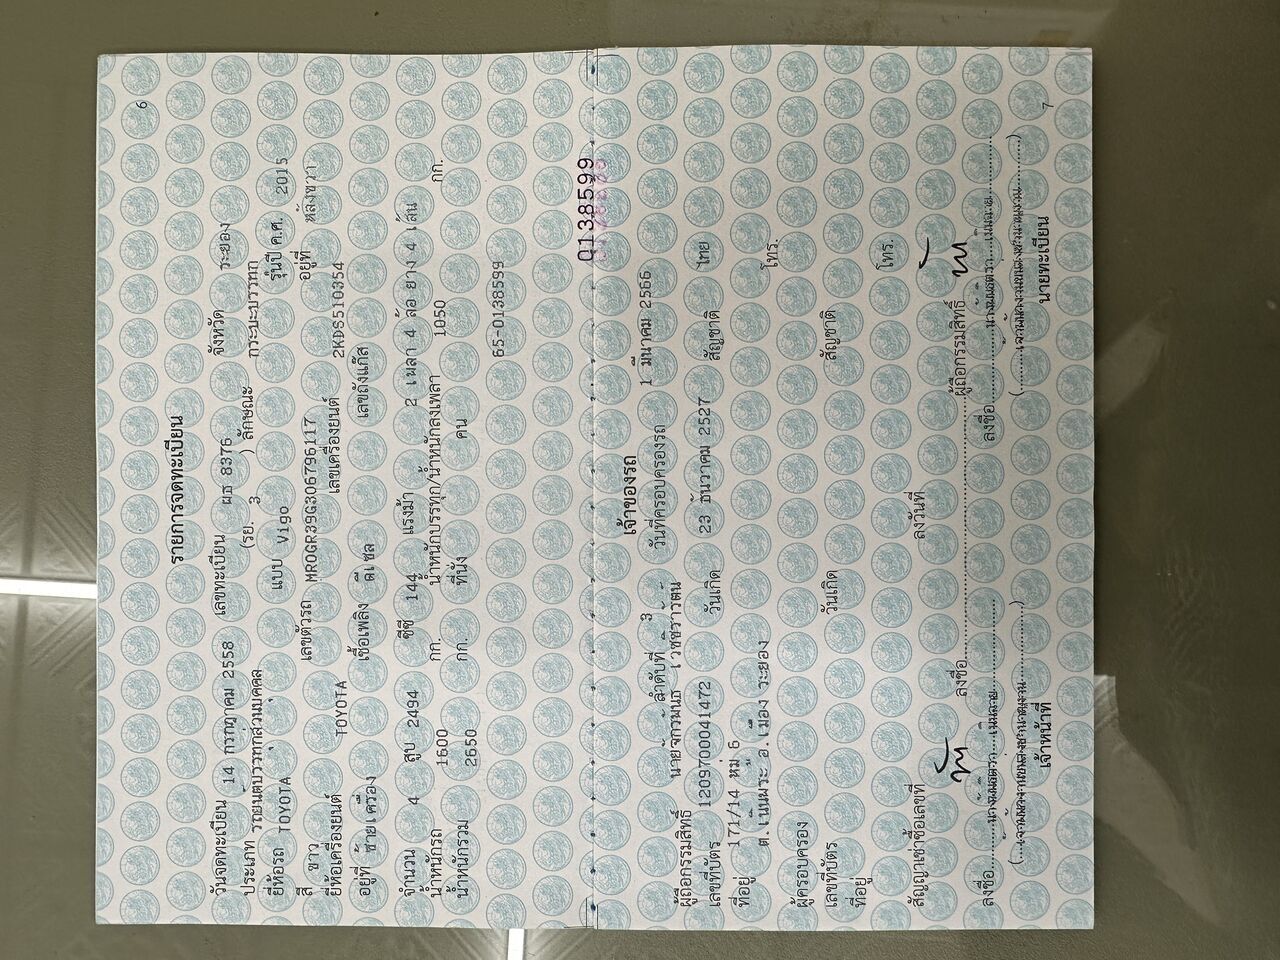 6
รายการจดทะเบียน
วันจดทะเบียน 14 กรกฎาคม 2558 เลขทะเบียน ผธ 8376 จังหวัด ระยอง
ประเภท รถยนต์บรรทุกส่วนบุคคล (รย. 3 ) ลักษณะ กระบะบรรทุก
ยี่ห้อรถ TOYOTA แบบ Vigo รุ่นปี ค.ศ. 2015
สี ขาว เลขตัวรถ MR0GR39G306796117 อยู่ที่ หลังขวา
ยี่ห้อเครื่องยนต์ TOYOTA เลขเครื่องยนต์ 2KDS510354
อยู่ที่ ซ้ายเครื่อง เชื้อเพลิง ดีเซล เลขถังแก๊ส
จำนวน 4 สูบ 2494 ซีซี 144 แรงม้า 2 เพลา 4 ล้อ ยาง 4 เส้น
น้ำหนักรถ 1600 กก. น้ำหนักบรรทุก/น้ำหนักลงเพลา 1050 กก.
น้ำหนักรวม 2650 กก. ที่นั่ง คน
65-0138599
0138599
เจ้าของรถ
ลำดับที่ 3 วันที่ครอบครองรถ 1 มีนาคม 2566
ผู้ถือกรรมสิทธิ์ นายจักรพันธ์ เวชชราวัฒน์
เลขที่บัตร 1209700041472 วันเกิด 23 ธันวาคม 2527 สัญชาติ ไทย
ที่อยู่ 171/14 หมู่ 6
ต.เนินพระ อ.เมือง ระยอง โทร.
ผู้ครอบครอง
เลขที่บัตร วันเกิด สัญชาติ
ที่อยู่ โทร.
สัญญาเช่าซื้อเลขที่ ลงวันที่
ลงชื่อ ผู้ถือกรรมสิทธิ์
ลงชื่อ ลงชื่อ
เจ้าหน้าที่ นายทะเบียน
7